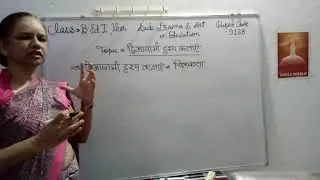 Class-B Ed I Year Sub Drama & Art in Education
Paper Code 9128
Topic = द्विआयामी दृश्य कलाएँ
द्विआयामी दृश्य कलाएँ = चित्रकला